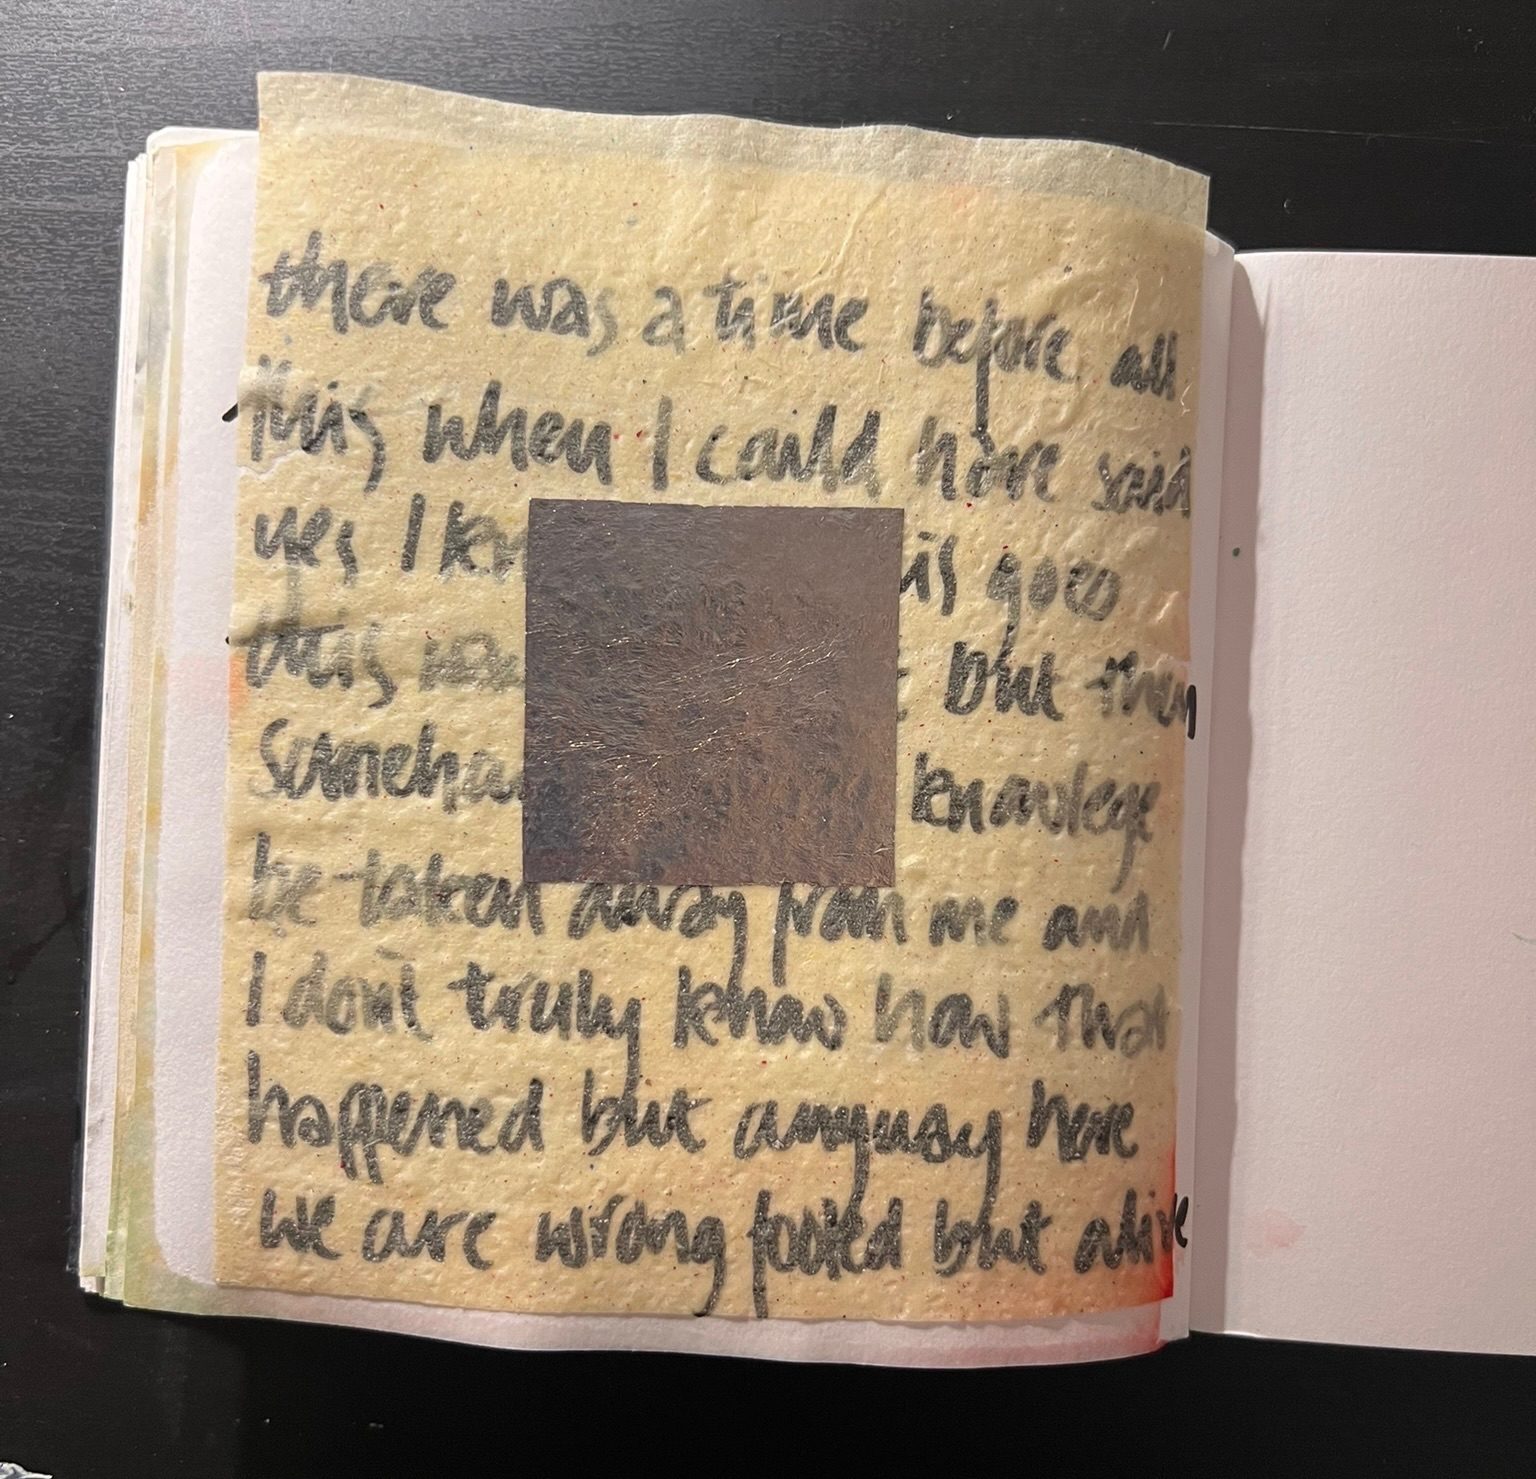 there was a time before all
this when I could have said
yes I kn is goes
this was t but then
somehow knowlege
be taken away from me and
I don't truly know how that
happened but anyway here
we are wrong footed but alive